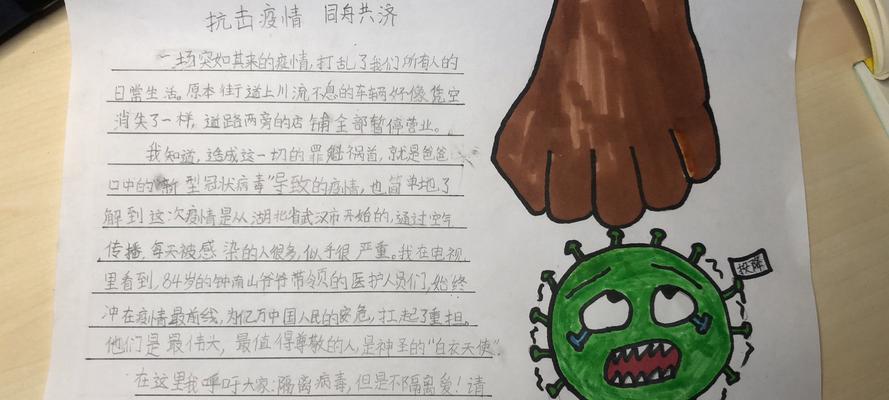 抗击疫情 同舟共济
一场突如其来的疫情,打乱了我们所有人的
日常生活。原本街道上川流不息的车辆好像凭空
消失了一样,道路两旁的店铺全部暂停营业。
我知道,造成这一切的罪魁祸首,就是爸爸
口中的“新型冠状病毒”导致的疫情,也简单地了
解到这次疫情是从湖北省武汉市开始的,通过空气
传播,每天被感染的人很多,似乎很严重。我在电视
里看到,84岁的钟南山爷爷带领的医护人员们,始终
冲在疫情最前线,为亿万中国人民的安危,扛起了重担。
他们是最伟大,最值得尊敬的人,是神圣的“白衣天使”
在这里我呼吁大家:隔离病毒,但是不隔离爱!请
投降